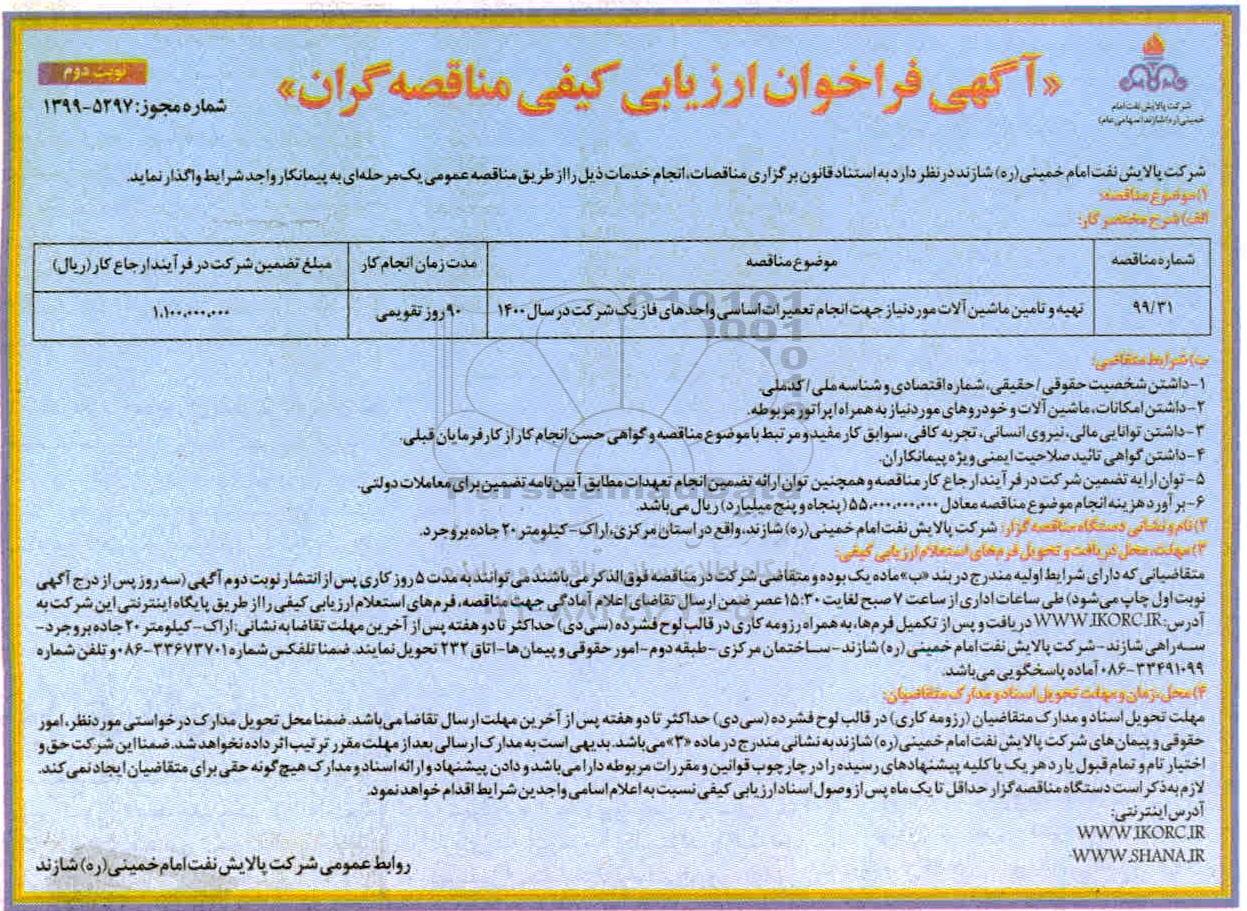 «آگهی فراخوان ارزیابی کیفی مناقصه گران»
نوبت دوم
شماره مجوز: ۵۲۹۷-۱۳۹۹
شرکت پالایش نفت امام
خمینی(ره) شازند(سهامی عام)
شرکت پالایش نفت امام خمینی(ره) شازند در نظر دارد به استناد قانون برگزاری مناقصات، انجام خدمات ذیل را از طریق مناقصه عمومی یک مرحله‌ای به پیمانکار واجد شرایط واگذار نماید.
۱) موضوع مناقصه:
الف) شرح مختصر کار:
شماره مناقصه
موضوع مناقصه
مدت زمان انجام کار
مبلغ تضمین شرکت در فرآیند ارجاع کار (ریال)
۹۹/۳۱
تهیه و تامین ماشین آلات مورد نیاز جهت انجام تعمیرات اساسی واحدهای فاز یک شرکت در سال ۱۴۰۰
۹۰ روز تقویمی
۱.۱۰۰.۰۰۰.۰۰۰
ب) شرایط متقاضی:
۱-داشتن شخصیت حقوقی / حقیقی، شماره اقتصادی و شناسه ملی / کدملی.
۲-داشتن امکانات، ماشین آلات و خودروهای مورد نیاز به همراه اپراتور مربوطه.
۳-داشتن توانایی مالی، نیروی انسانی، تجربه کافی، سوابق کار مفید و مرتبط با موضوع مناقصه و گواهی حسن انجام کار از کارفرمایان قبلی.
۴-داشتن گواهی تائید صلاحیت ایمنی ویژه پیمانکاران.
۵-توان ارایه تضمین شرکت در فرآیند ارجاع کار مناقصه و همچنین توان ارائه تضمین انجام تعهدات مطابق آیین‌نامه تضمین برای معاملات دولتی.
۶-برآورد هزینه انجام موضوع مناقصه معادل ۵۵.۰۰۰.۰۰۰.۰۰۰ (پنجاه و پنج میلیارد) ریال می‌باشد.
۲) نام و نشانی دستگاه مناقصه گزار: شرکت پالایش نفت امام خمینی(ره) شازند، واقع در استان مرکزی، اراک-کیلومتر ۲۰ جاده بروجرد.
۳) مهلت، محل دریافت و تحویل فرم‌های استعلام ارزیابی کیفی:
متقاضیانی که دارای شرایط اولیه مندرج در بند «ب» ماده یک بوده و متقاضی شرکت در مناقصه فوق‌الذکر می‌باشند می‌توانند به مدت ۵ روز کاری پس از انتشار نوبت دوم آگهی (سه روز پس از درج آگهی
نوبت اول چاپ می‌شود) طی ساعات اداری از ساعت ۷ صبح لغایت ۱۵:۳۰ عصر ضمن ارسال تقاضای اعلام آمادگی جهت مناقصه، فرم‌های استعلام ارزیابی کیفی را از طریق پایگاه اینترنتی این شرکت به
آدرس: WWW.IKORC.IR دریافت و پس از تکمیل فرم‌ها، به همراه رزومه کاری در قالب لوح فشرده (سی دی) حداکثر تا دو هفته پس از آخرین مهلت تقاضا به نشانی: اراک-کیلومتر ۲۰ جاده بروجرد-
سه‌راهی شازند-شرکت پالایش نفت امام خمینی(ره) شازند-ساختمان مرکزی-طبقه دوم-امور حقوقی و پیمان‌ها-اتاق ۲۳۲ تحویل نمایند. ضمنا تلفکس شماره ۳۳۶۷۳۷۰۱-۰۸۶ و تلفن شماره
۳۳۴۹۱۰۹۹-۰۸۶ آماده پاسخگویی می‌باشد.
۴) محل، زمان و مهلت تحویل اسناد و مدارک متقاضیان:
مهلت تحویل اسناد و مدارک متقاضیان (رزومه کاری) در قالب لوح فشرده (سی‌دی) حداکثر تا دو هفته پس از آخرین مهلت ارسال تقاضا می‌باشد. ضمنا محل تحویل مدارک درخواستی مورد نظر، امور
حقوقی و پیمان‌های شرکت پالایش نفت امام خمینی(ره) شازند به نشانی مندرج در ماده «۳» می‌باشد. بدیهی است به مدارک ارسالی بعد از مهلت مقرر ترتیب اثر داده نخواهد شد. ضمنا این شرکت حق و
اختیار تام و تمام قبول یا رد هر یک یا کلیه پیشنهادهای رسیده را در چارچوب قوانین و مقررات مربوطه دارا می‌باشد و دادن پیشنهاد و ارائه اسناد و مدارک هیچ گونه حقی برای متقاضیان ایجاد نمی کند.
لازم به ذکر است دستگاه مناقصه گزار حداقل تا یک ماه پس از وصول اسناد ارزیابی کیفی نسبت به اعلام اسامی واجدین شرایط اقدام خواهد نمود.
آدرس اینترنتی:
WWW.IKORC.IR
WWW.SHANA.IR
روابط عمومی شرکت پالایش نفت امام خمینی(ره) شازند